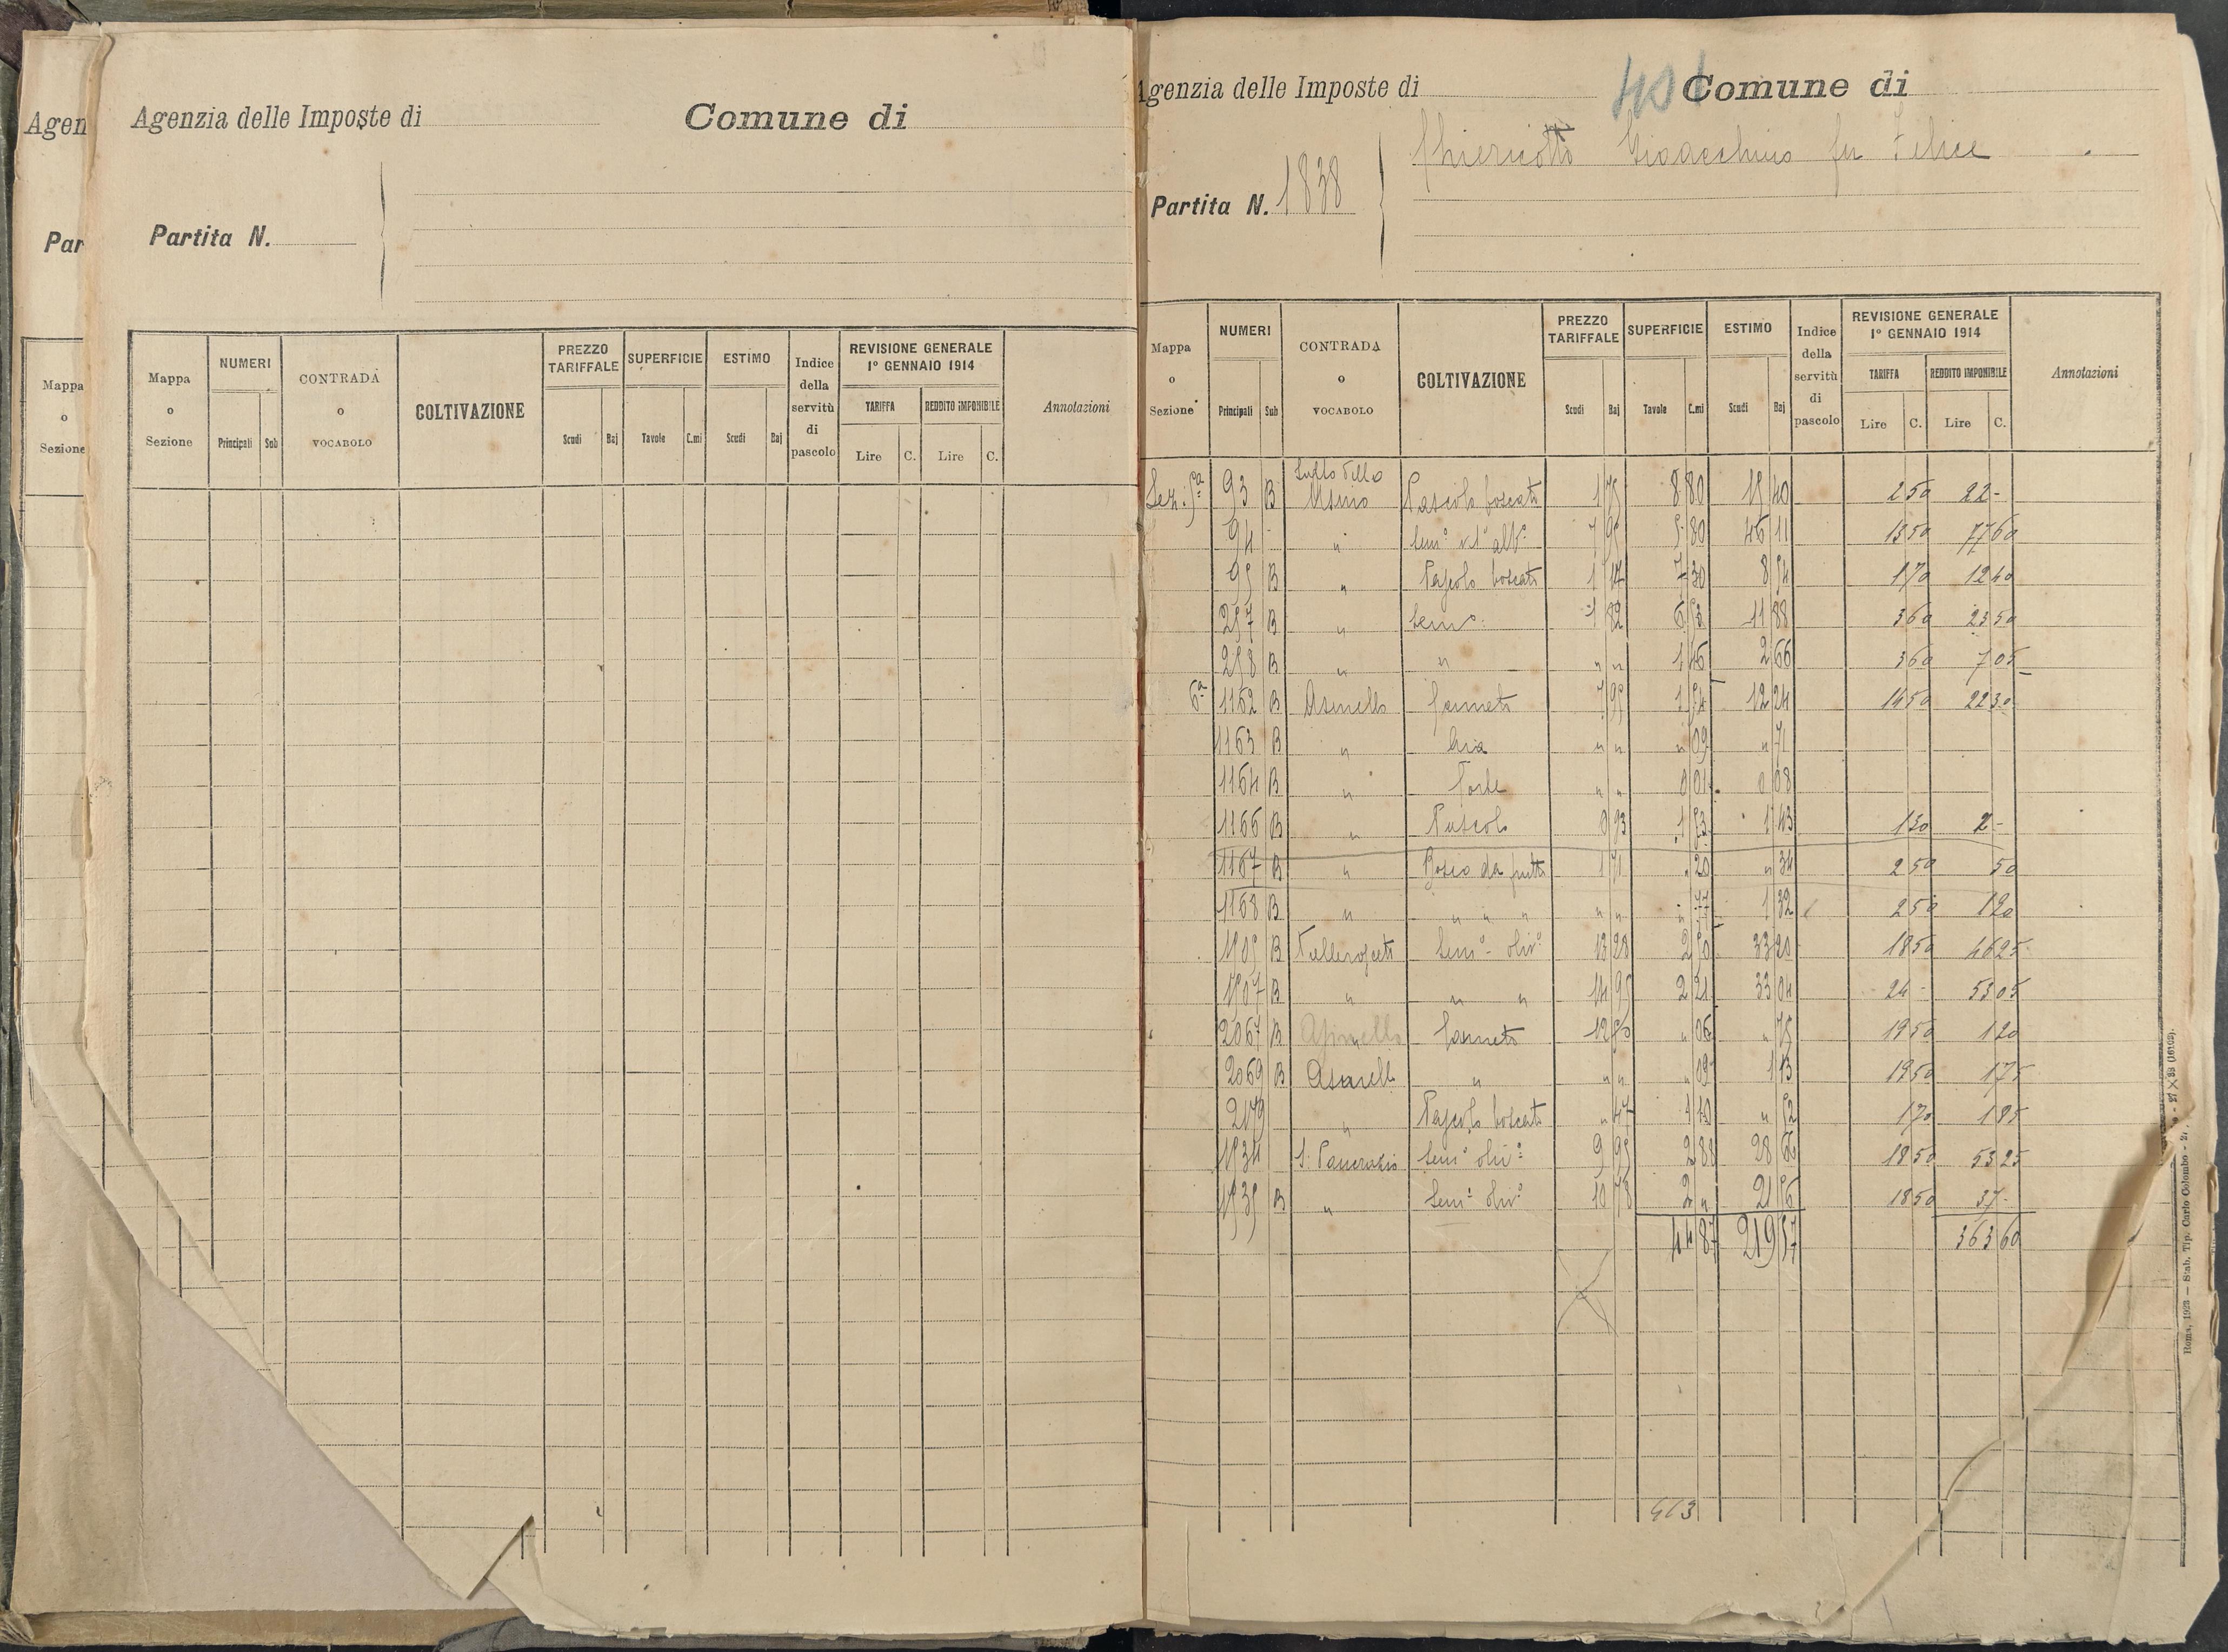 Agen
Par
Mappa
o
Sezione
Agenzia delle Imposte di
Comune di
Partita N.
Mappa o Sezione
NUMERI
Principali Sub
CONTRADA o VOCABOLO
COLTIVAZIONE
PREZZO TARIFFALE
Scudi Baj
SUPERFICIE
Tavole C.mi
ESTIMO
Scudi Baj
Indice della servitù di pascolo
REVISIONE GENERALE
1° GENNAIO 1914
TARIFFA REDDITO IMPONIBILE
Lire C. Lire C.
Annotazioni
Agenzia delle Imposte di
401
Comune di
Partita N. 1838
Gioacchino fu Felice
Mappa o Sezione
NUMERI
Principali Sub
CONTRADA o VOCABOLO
COLTIVAZIONE
PREZZO TARIFFALE
Scudi Baj
SUPERFICIE
Tavole C.mi
ESTIMO
Scudi Baj
Indice della servitù di pascolo
REVISIONE GENERALE
1° GENNAIO 1914
TARIFFA REDDITO IMPONIBILE
Lire C. Lire C.
Annotazioni
Sez. 5ª 93 B Pascolo boscato 1 75 8 80 15 40 2 50 22 -
94 - " 7 95 5 80 46 11 13 50 77 60
95 B " Pascolo boscato 1 17 7 30 8 54 1 70 12 40
257 B " Sem° 1 82 6 53 11 88 3 60 23 50
258 B " " " " 1 46 2 66 3 60 7 05
6ª 1162 B Asinello Canneto 7 95 1 54 12 24 14 50 22 30
1163 B " Aia " " " 09 " 71
1164 B " " " 0 01 0 08
1166 B " Pascolo 0 93 1 53 1 43 1 30 2 -
1167 B " Bosco da frutto 1 71 " 20 " 34 2 50 50
1168 B " " " " " " " 77 1 32 2 50 1 20
1505 B Sem° oliv° 13 28 2 50 33 20 18 50 46 25
1507 B " " " 14 95 2 21 33 04 24 - 53 05
2067 B Asinello Canneto 12 50 " 06 " 75 19 50 1 20
2069 B " " " " 09 1 13 19 50 1 75
2179 " Pascolo boscato " 47 1 10 " 52 1 70 1 85
1534 S. Pancrazio Sem° oliv° 9 95 2 88 28 66 18 50 53 25
1535 B " Sem° oliv° 10 78 2 " 21 56 18 50 37 -
44 87 219 57 363 60
463
Roma, 1923 — Stab. Tip. Carlo Colombo